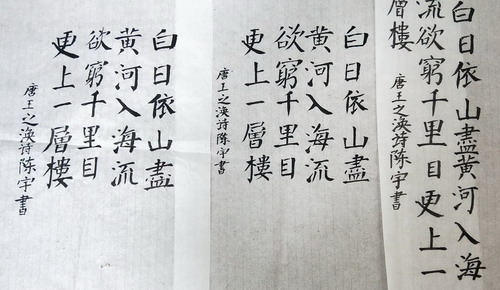 白日依山盡黄河入海
流欲窮千里目更上一
層樓
唐王之渙詩陳宇書
白日依山盡
黄河入海流
欲窮千里目
更上一層樓
唐王之渙詩陳宇書
白日依山盡
黄河入海流
欲窮千里目
更上一層樓
唐王之渙詩陳宇書